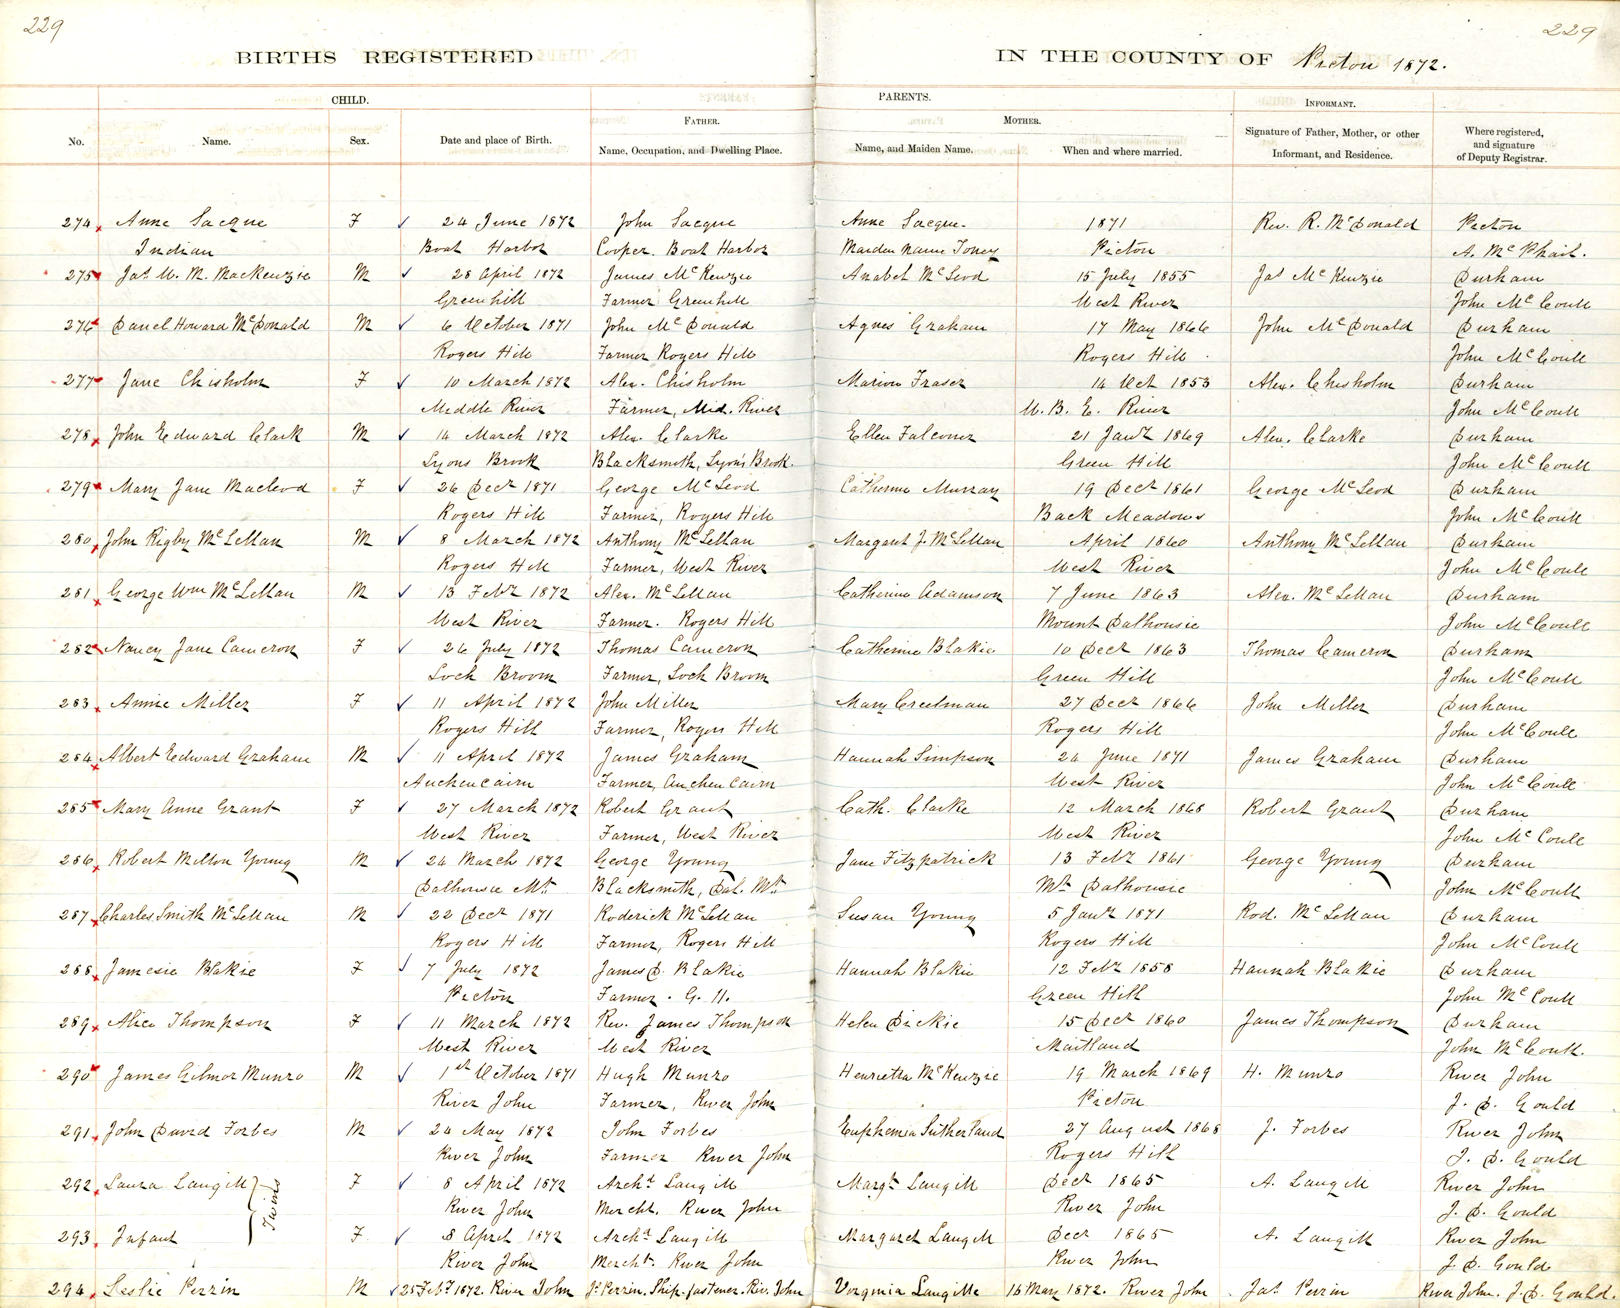 229
229
BIRTHS REGISTERED IN THE COUNTY OF Pictou 1872.
CHILD. PARENTS. INFORMANT.
FATHER. MOTHER.
No. Name. Sex. Date and place of Birth. Name, Occupation, and Dwelling Place. Name, and Maiden Name. When and where married. Signature of Father, Mother, or other Informant, and Residence. Where registered, and signature of Deputy Registrar.
274 Anne Sacque F 24 June 1872 John Sacque Anne Sacque 1871 Rev. R. McDonald Pictou
Indian Boat Harbor Cooper. Boat Harbor Maiden Name Toney Pictou A. McPhail.
275 Jas W. M. MacKenzie M 28 April 1872 James McKenzie Anabel McLeod 15 July 1855 Jas McKenzie Durham
Greenhill Farmer Greenhill West River John McCoull
276 Daniel Howard McDonald M 6 October 1871 John McDonald Agnes Graham 17 May 1866 John McDonald Durham
Rogers Hill Farmer Rogers Hill Rogers Hill. John McCoull
277 Jane Chisholm F 10 March 1872 Alex. Chisholm Marion Fraser 14 Oct 1853 Alex. Chisholm Durham
Middle River Farmer, Mid. River W. B. E. River John McCoull
278 John Edward Clark M 14 March 1872 Alex. Clarke Ellen Falconer 21 Jany 1869 Alex. Clarke Durham
Lyons Brook Blacksmith, Lyon's Brook. Green Hill John McCoull
279 Mary Jane Macleod F 26 Decr 1871 George McLeod Catherine Murray 19 Decr 1861 George McLeod Durham
Rogers Hill Farmer, Rogers Hill Back Meadows John McCoull
280 John Rigby McLellan M 8 March 1872 Anthony McLellan Margaret J. McLellan April 1860 Anthony McLellan Durham
Rogers Hill Farmer, West River West River John McCoull
281 George Wm McLellan M 13 Feby 1872 Alex. McLellan Catherine Adamson 7 June 1863 Alex. McLellan Durham
West River Farmer. Rogers Hill Mount Dalhousie John McCoull
282 Nancy Jane Cameron F 26 July 1872 Thomas Cameron Catherine Blakie 10 Decr 1863 Thomas Cameron Durham
Loch Broom Farmer, Loch Broom Green Hill John McCoull
283 Annie Miller F 11 April 1872 John Miller Mary Creelman 27 Decr 1866 John Miller Durham
Rogers Hill Farmer, Rogers Hill Rogers Hill John McCoull
284 Albert Edward Graham M 11 April 1872 James Graham Hannah Simpson 24 June 1871 James Graham Durham
Auchencairn Farmer, Auchencairn West River John McCoull
285 Mary Anne Grant F 27 March 1872 Robert Grant Cath. Clarke 12 March 1868 Robert Grant Durham
West River Farmer, West River West River John McCoull
286 Robert Milton Young M 26 March 1872 George Young Jane Fitzpatrick 13 Feby 1861 George Young Durham
Dalhousie Mt. Blacksmith, Dal. Mt. Mt. Dalhousie John McCoull
287 Charles Smith McLellan M 22 Decr 1871 Roderick McLellan Susan Young 5 Jany 1871 Rod. McLellan Durham
Rogers Hill Farmer, Rogers Hill Rogers Hill John McCoull
288 Jamesie Blakie F 7 July 1872 James D. Blakie Hannah Blakie 12 Feby 1858 Hannah Blakie Durham
Pictou Farmer. G. H. Green Hill John McCoull
289 Alice Thompson F 11 March 1872 Rev. James Thompson Helen Dickie 15 Decr 1860 James Thompson Durham
West River West River Maitland John McCoull.
290 James Gilmor Munro M 1st October 1871 Hugh Munro Henrietta McKenzie 19 March 1869 H. Munro River John
River John Farmer, River John Pictou J. D. Gould
291 John David Forbes M 24 May 1872 John Forbes Euphemia Sutherland 27 August 1868 J. Forbes River John
River John Farmer River John Rogers Hill J. D. Gould
292 Laura Langill F 8 April 1872 Archd Langill Margt Langill Decr 1865 A. Langill River John
Twins River John Mercht. River John River John J. D. Gould
293 Infant F 8 April 1872 Archd Langill Margaret Langill Decr 1865 A. Langill River John
River John Mercht. River John River John J. D. Gould
294 Leslie Perrin M 25 Feby 1872. River John Js Perrin. Ship-fastener. Riv. John Virginia Langille 16 May 1872. River John Jas Perrin River John. J. D. Gould.